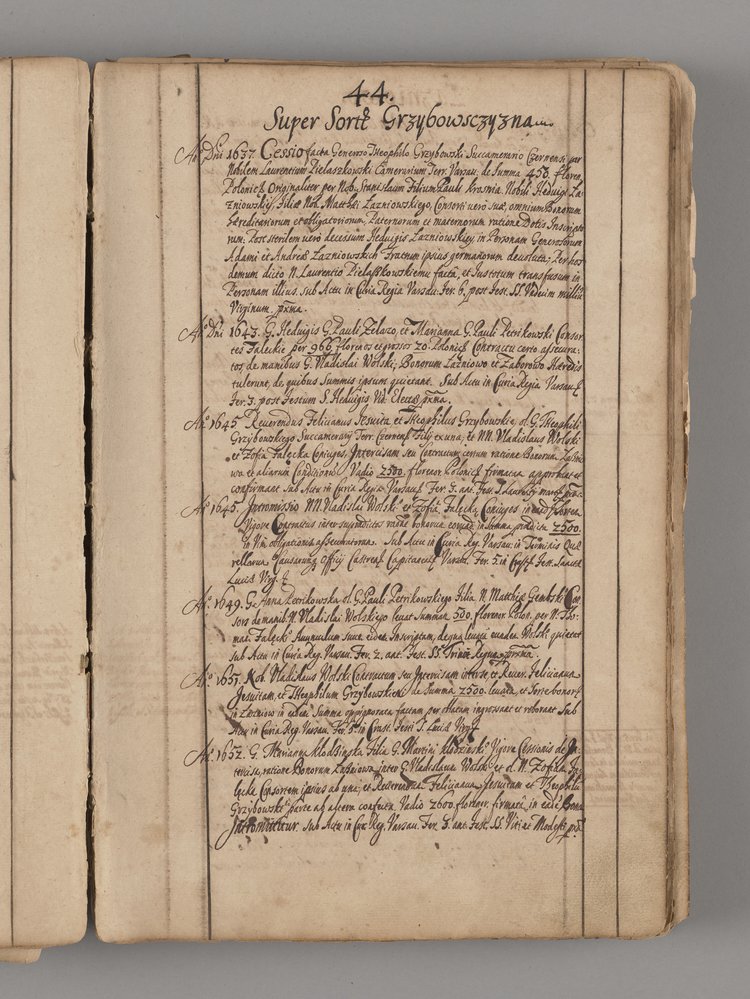 44.
Super Sorte Grzybowsczyzna
Aº Dni 1637. Cessio facta Generoso Theophilo Grzybowski Succamerario Czernensi per
Nobilem Laurentium Pielaszkowski Camerarium Terr. Varsau: de Summa 450. floren.
Polonical. Originaliter per Nob. Stanislaum Filium Pauli Krasnia Nobili Hedvigi La-
zniowskiej, Filiæ Nob. Matthæi Lazniowskiego, Consorti vero suæ, omnium Bonorum
hæreditariorum et obligatoriorum, Paternorum et maternorum ratione Dotis Inscripto
rum. Post sterilem vero decessum Hedvigis Lazniowskiey in Personam Generosorum
Adami et Andreæ Lazniowskich Fratrum ipsius germanorum devoluta; Per hos
demum dicto N. Laurentio Pielaszkowskiemu facta, et Sustotum transfusum in
Personam illius. sub Actu in Curia Regia Varsau. Fer. 6. post Fest. SS. Undecim millium
Virginum pxma.
Aº Dni 1643. G. Hedvigis G. Pauli Zelazo, et Marianna G. Pauli Petrikowski Consor-
tes Falęckie per 966 florenos et grossos 20. Polonical. Contractu certo assecura-
tos, de manibus G. Vladislai Wolski; Bonorum Lazniowo et Zaborowo Hæredis
tulerunt, de quibus Summis ipsum quietant. Sub Actu in Curia Regia Varsau.
Fer. 3. post Festum S. Hedvigis Vid. Electæ pxma.
Aº 1645 Reverendus Felicianus Jesuita et Theophilus Grzybowskie, ol. G. Theophili
Grzybowskiego Succamerarij Terr. Czernens. Filij ex una; et NN. Vladislaus Wolski
et Zofia Falęcka Coniuges, Intercisam seu Contractum certum ratione Bonorum Laznio
wo et aliarum Conditionum Vadio 2500. florenor. Polonical. firmatam approbant et
confirmant sub Actu in Curia Regia Varsau. Fer. 3. ant. Fest. S. Laurentij mart. pxa.
Aº 1645. Intromissio NN. Vladislai Wolski et Zofiæ Falęcka Coniuges in
Vigore Contractus inter suprædictos ratione bonorum eorundem in summa prædicta 2500.
in Vim obligationis assecuratorum. Sub Actu in Curia Reg. Varsau: in Terminis Que-
rellarum Causarum Officij Castrens. Capitaneal. Varsau. Fer. 2. in Crast. Fest. Sanctæ
Luciæ Virg.
Aº 1649. G. Anna Petrikowska ol. G. Pauli Petrikowskiego Filia N. Matthiæ Gembski Con-
sors de manib. N. Vladislai Wolskiego levat Summam 500. florenor. Polon. per N. Tho-
mam Falęcki Avunculum suum eidem Inscriptam, de qua levata eundem Wolski quietat
sub Actu in Curia Reg. Varsau. Fer. 2. ant. Fest. SS. Trium Regum pxma.
Aº 1651. Nob. Vladislaus Wolski Contractum seu Intercisam inter se, et Rever. Felicianum
Jesuitam, et Theophilum Grzybowskiemi de Summa 2500. levata, et Sorte bonor.
in Lazniow in eadem Summa oppignorata factam per oblatam ingrossant et roborant sub
Actu in Curia Reg. Varsau. Fer. 5. in Crast. Festi S. Luciæ Virg.
Aº 1652. G. Marianna Klodzinska Filia G. Martini Klodzinski Vigore Cessionis de In-
tercisa, ratione Bonorum Lazniowa inter G. Vladislaum Wolski et ol. N. Zofiam Fa-
lęcka Consortem ipsius ab una; et Reverendum Felicianum Jesuitam et Theophilum
Grzybowski parte ab altera confecta Vadio 2600. florenor. firmata, in eade Bona
Intromittitur. sub Actu in Cur. Reg. Varsau. Fer. 3. ant. Fest. SS. Viti ac Modesti pxª